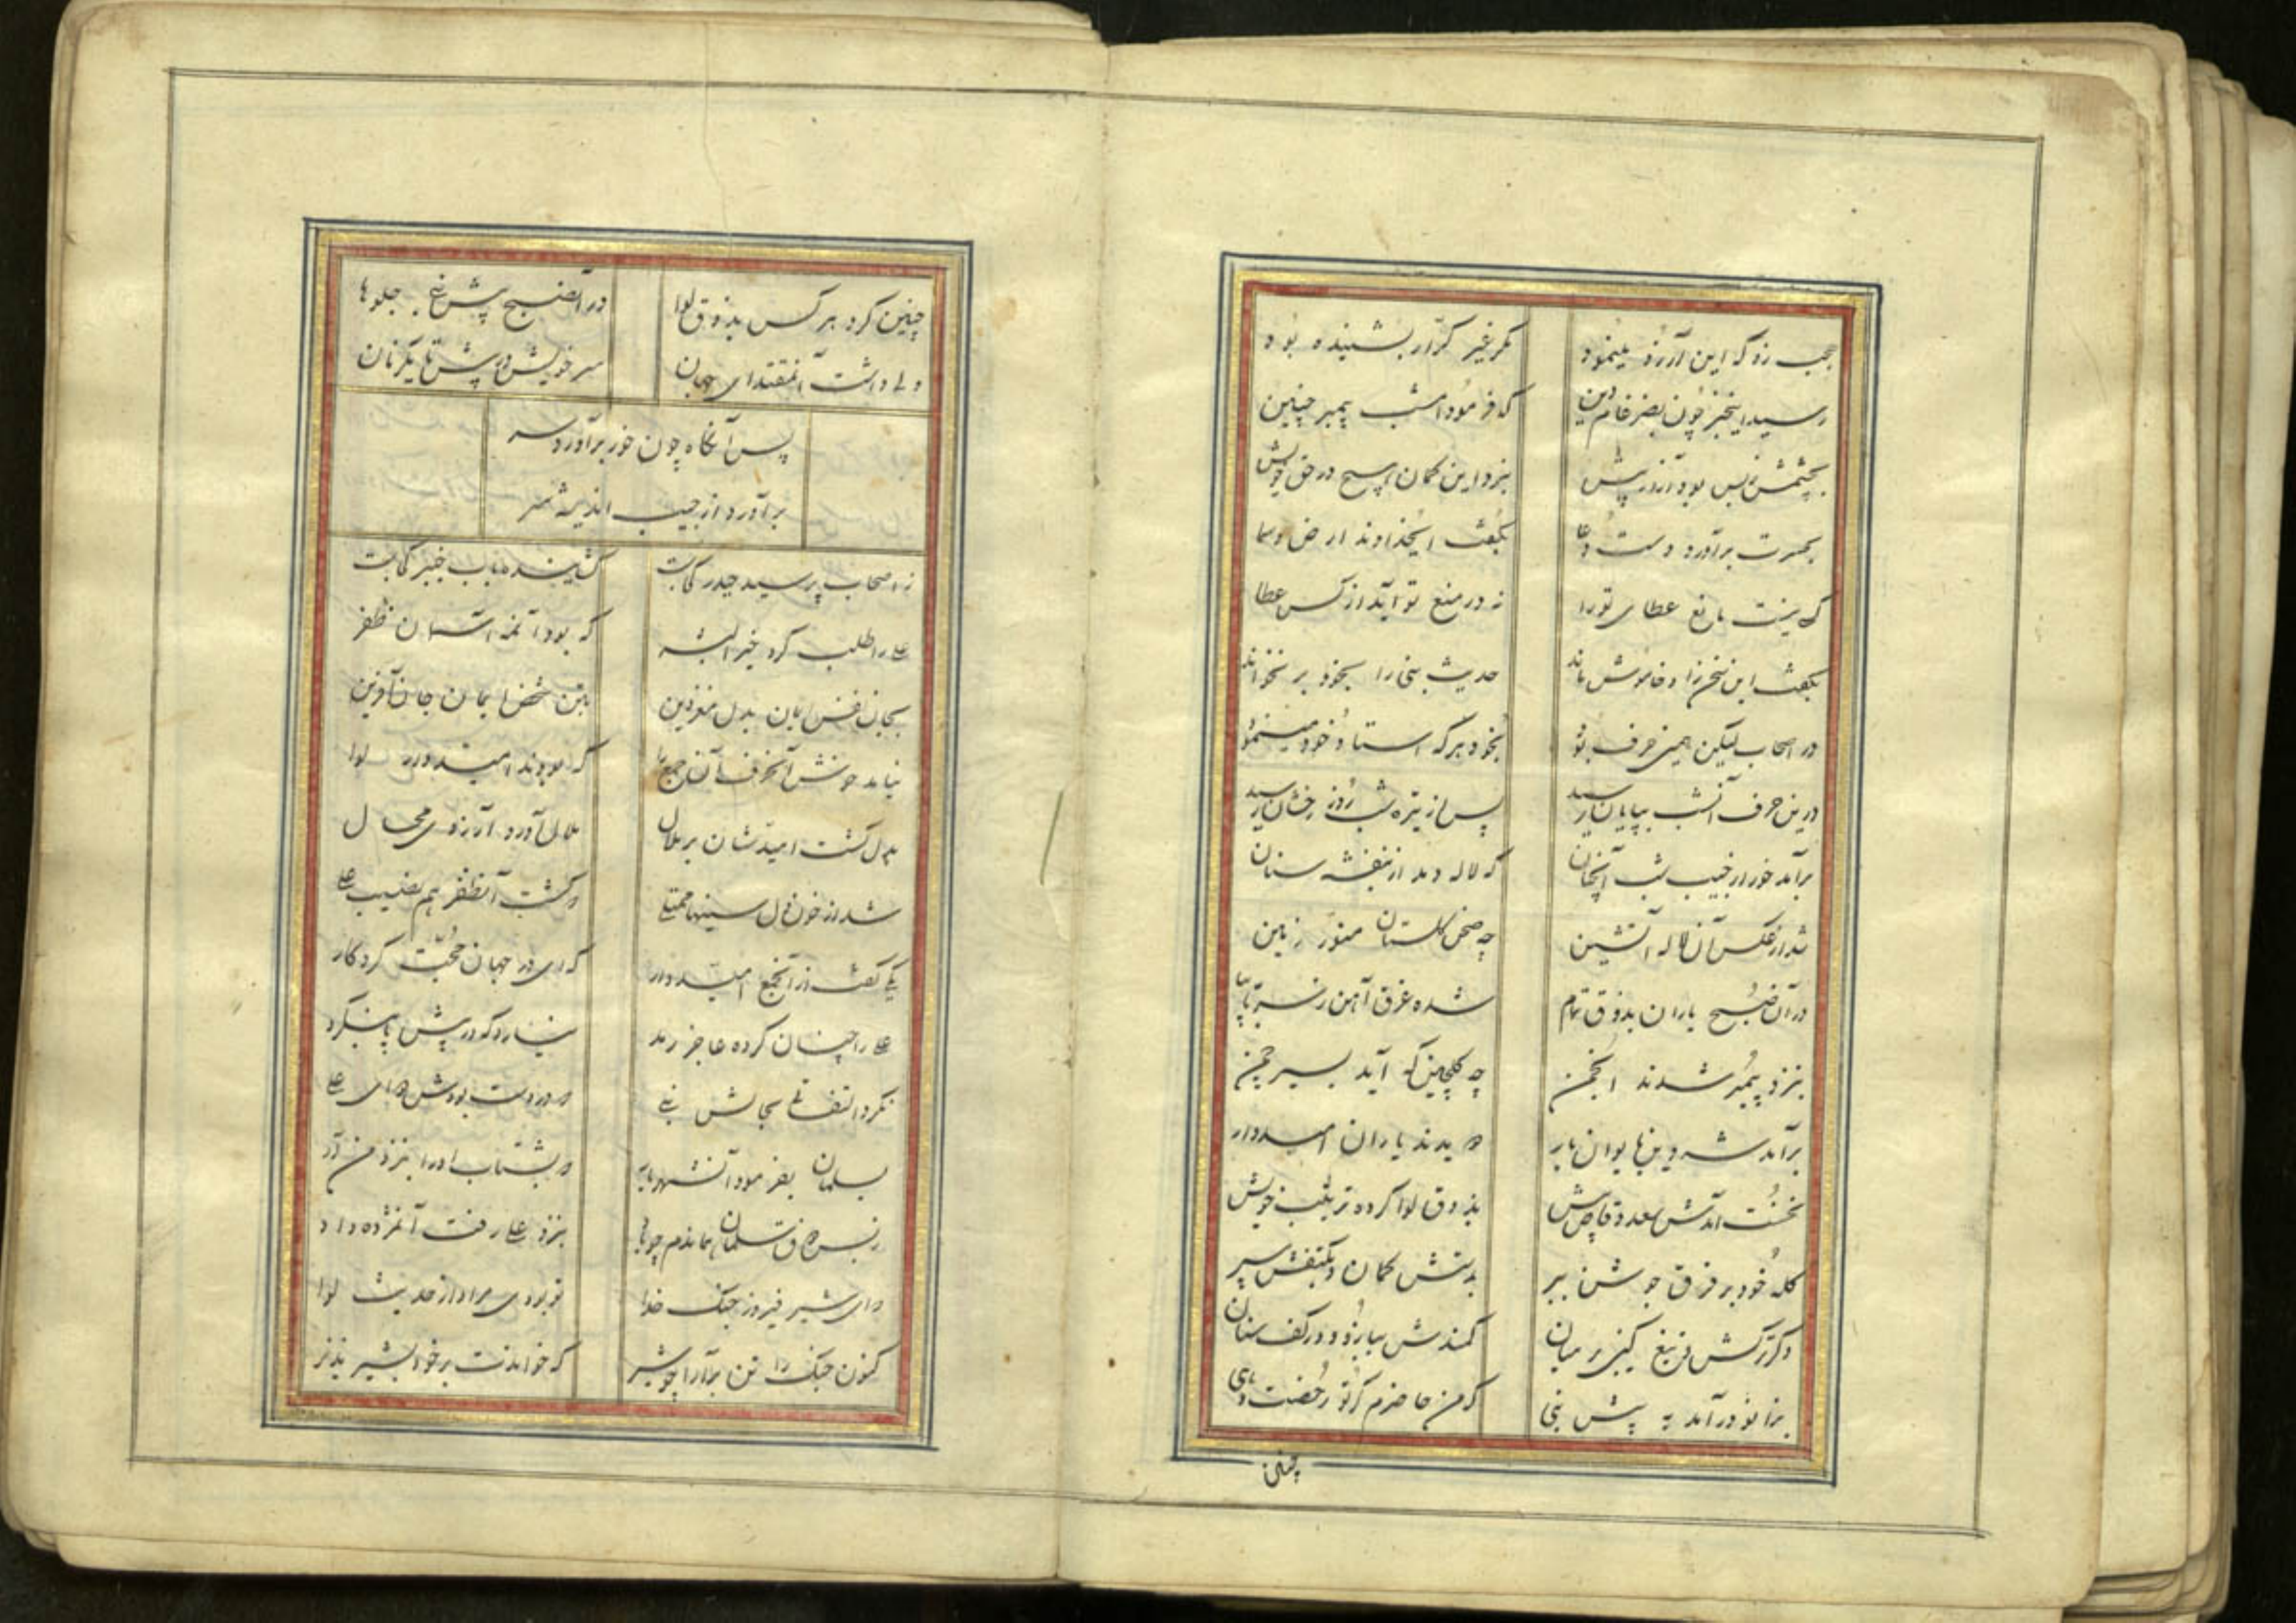 عجب زد که این آرزو مینمود
مگر غیر کرّار بشنیده بود
رسید اینخبر چون بضرغام دین
که فرموده امشب پیمبر چنین
بچشمش بس بود آزرم پیش
نزد این کمان هیچ در حق خویش
بحسرت برآورد دست دعا
بگفت ایخداوند ارض و سما
که نیست مانع عطای تو را
نه در منع تو آید از کس عطا
بگفت این سخن را و خاموش ماند
حدیث نبی را بخود بر نخواند
در اصحاب لیکن همین حرف بود
بخود هر که استاد خود مینمود
درین حرف آنشب بپایان رسید
پس از تیره شب روز رخشان رسید
برآمد خور از جیب شب آنچنان
که لاله دمد از بنفشه ستان
شد از عکس آن لاله آتشین
چه صحن گلستان منور زمین
در آن صبح یاران بذوق تمام
شده غرق آهن ز سر تا بپا
بنزد پیمبر شدند انجمن
چه گلچین که آید بسیر چمن
برآمد شه دین بایوان بار
دویدند یاران امیدوار
نخست آمدش سعد وقاص پیش
بذوق لوا کرده ترتیب خویش
کله خود بر فرق جوشن ببر
بدستش کمان و بکتفش سپر
دگر ترکش و تیغ کین بر میان
کمندش ببازو و در کف سنان
بزانو درآمد به پیش نبی
که من حاضرم گر تو رخصت دهی
چنین
چنین کرد هر کس بذوق لوا
در آنصبح پیش نبی جلوها
ولی داشت آنمقتدای جهان
سر خویش در پیش تا یکزمان
پس آنگاه چون خور برآورد سر
برآورد از جیب اندیشه سر
ز اصحاب پرسید حیدر کجاست
گشاینده باب خیبر کجاست
علی را طلب کرد خیر البشر
که بود آنمه آسمان ظفر
بجان نفس ایمان بدل مغز دین
بتن شخص ایمان جان آفرین
نیامد خوش آنحرف آن جمع را
که بودند امیدوار لوا
بدل گشت امیدشان بر ملال
ملال آورد آرزوی محال
شد از خون دل سینها ممتلی
که گشت آنظفر هم نصیب علی
یکی گفت از آنجمع امیدوار
که ای در جهان حجت کردگار
علی را چنان کرده عاجز رمد
نیارد که در پیش پا بنگرد
نکرد التفاتی بحالش نبی
در دست بودش دوای علی
بسلمان بفرمود آنشهریار
بشتاب او را بنزد من آر
سلمان بماندم چو باد
بنزد علی رفت آنمژده داد
که ای شیر فیروز جنگ خدا
تو بودی مراد از حدیث لوا
کنون جنگ را تن بیارا چو شیر
که خواندت برخود بشیر نذیر